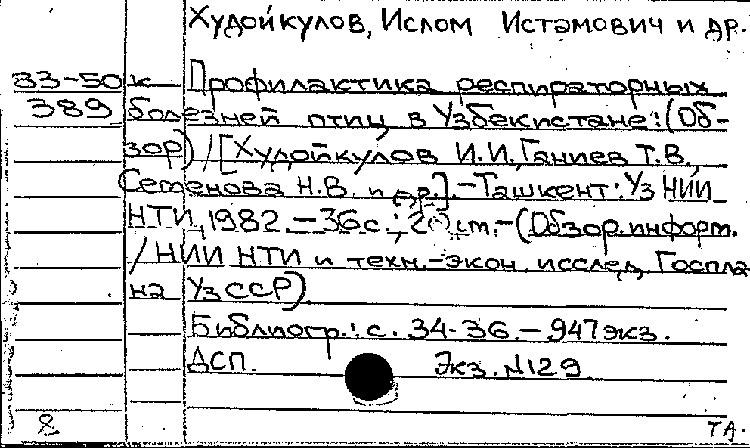 Худойкулов, Ислом Истамович и др.
83-50 к Профилактика респираторных
389 болезней птиц в Узбекистане: (Об-
зор) / [Худойкулов И.И., Ганиев Т.В.,
Семенова Н.В. и др.]. - Ташкент: УзНИИ
НТИ, 1982. - 36 с.; 20 см. - (Обзор. информ.
/ НИИ НТИ и техн.-экон. исслед. Госпла-
на УзССР)
Библиогр.: с. 34-36. - 947 экз.
ДСП. Экз. №129
ТА.